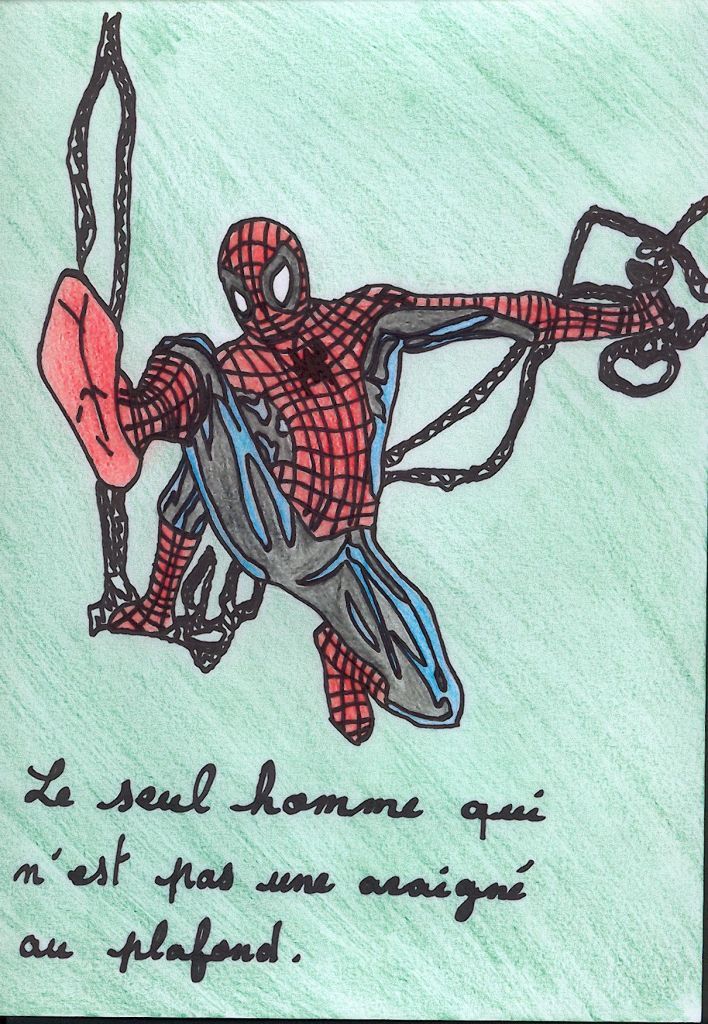 Le seul homme qui
n'est pas une araigné
au plafond.